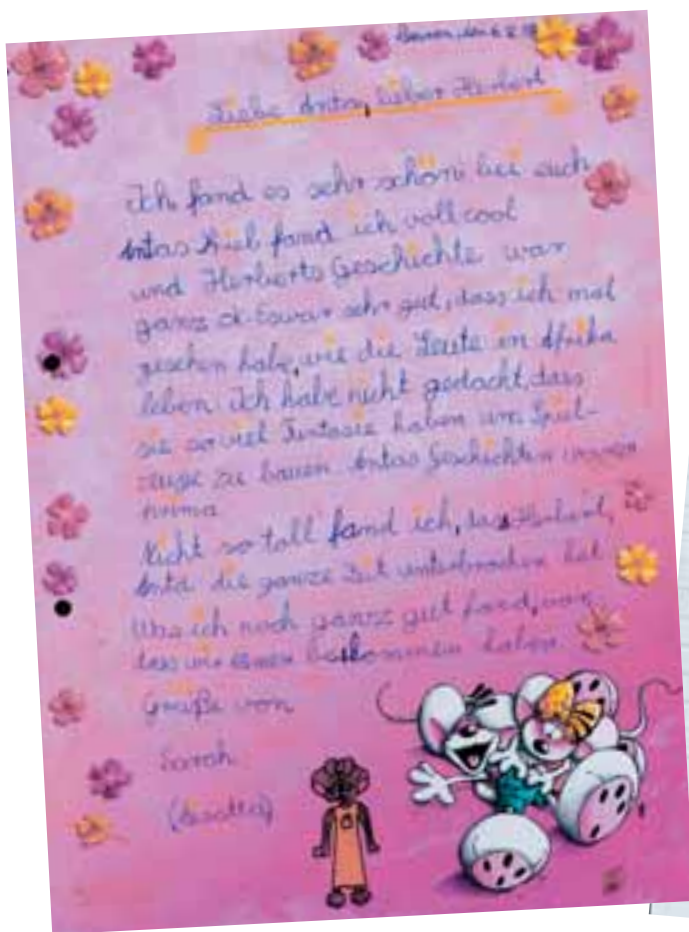 Liebe Anta, lieber Herbert
Ich fand es sehr schön bei euch
Antas fand ich voll cool
und Herberts Geschichte war
ganz ok. Es war sehr gut, dass ich mal
gesehen habe, wie die Leute in Afrika
leben. Ich habe nicht gedacht, dass
sie so viel Fantasie haben um Spiel-
zeuge zu bauen. Antas Geschichten waren
prima.
Nicht so toll fand ich, das Herbert,
Anta die ganze Zeit unterbrochen hat.
Was ich noch ganz gut fand, war
dass wir bekommen haben.
Grüße von
Sarah